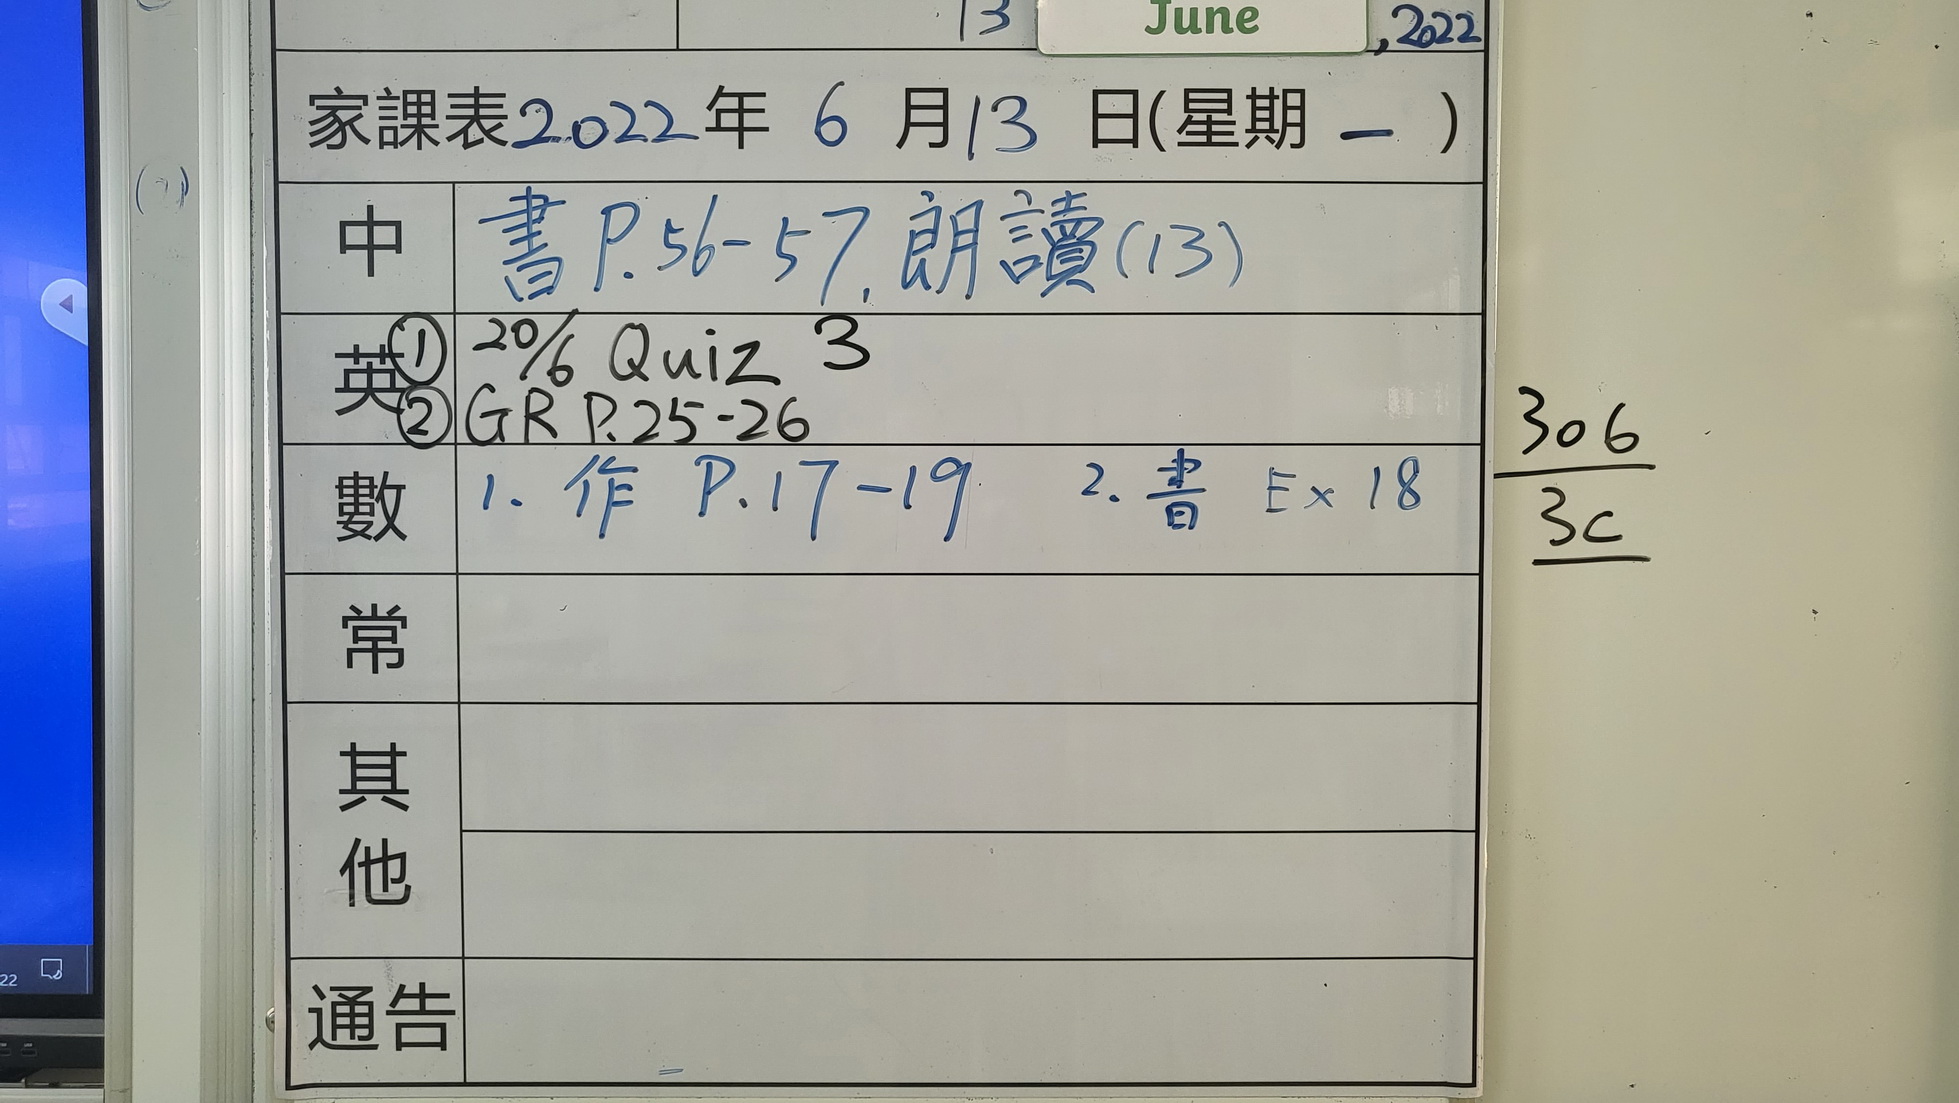 13 June , 2022
家課表2022年 6 月13 日(星期 一 )
中 書 P.56-57, 朗讀(13)
英 ① 20/6 Quiz 3
② GR P.25-26
數 1. 作 P.17-19 2. 書 Ex 18
常
其他
通告
306
3C
22